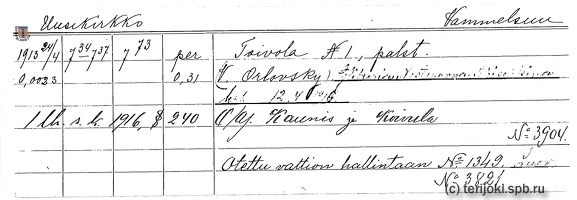 Uusikirkko Vammelsuu
1913 24/4 734 737 773 per Toivola № 1, palst.
0,0023 0,31 (V. Orlovsky)
12.4
1 lk. s. k. 1916, § 240 O/Y Kaunis ja Koivula
№ 3904.
Otettu valtion hallintaan № 1349.
№ 3821
(c) terijoki.spb.ru